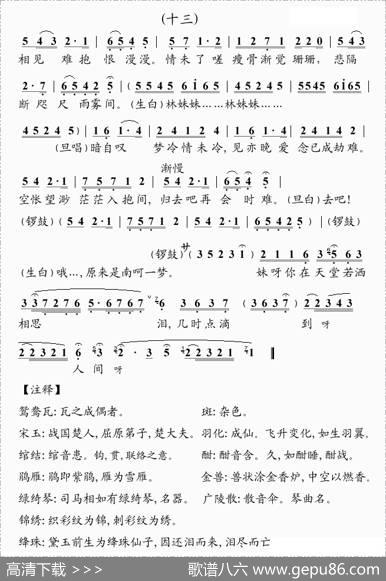 (十三)
5 4 3 2·1 | 6 5 4 5 | 5 7 1·2 | 1 2 7 1 | 2 0 2 1 2 0 | 5 4 3
相见 难抱 恨 漫漫。情未了 嗟 瘦骨渐觉 珊珊, 悲隔
2·7 | 6 5 4 2 5 | 5 5 4 5 6 i 6 5 | 4 5 2 4 5 | 5 5 4 5 6 i 6 5
断 咫 尺 雨雾间。(生白)林妹妹……林妹妹……
4 5 2 4 5 ) | 1 6 1·4 | 2 4 1 2 | 1 6 1 4 | 1 2 7 1 | 2 4 1 2 |
(旦唱)暗自叹 梦冷情未冷,见亦晚 爱 念已成劫难。
渐慢
5 4 2·1 | 7 5 7 1 2 | 5 4 2·1 | 6 5 4 5 |
空怅望渺 茫茫入抱间,归去吧再 会 时 难。(旦白)去吧!
(锣鼓) (5 4 2·1 | 7 5 7 1 2 | 5 4 2·1 | 6 5 4 2 5 ) | (锣鼓)
(锣鼓) サ (3 5 2 3 1) 2 1 1 6 3 5 6 3
(生白)哦…,原来是南呵一梦。 妹呀你在天堂若洒
3 3 7 2 7 6 5·6 7 6 7 6 3 6 3 7 (3 6 3 7) 2 2 3 4 3
相思 泪,几时点滴 到呀
2 2 3 2 1 6 3 2·3 5 2 2 3 2 1 1
人 间 呀
【注释】
鸳鸯瓦:瓦之成偶者。 斑:杂色。
宋玉:战国楚人,屈原弟子,楚大夫。 羽化:成仙。飞升变化,如生羽翼。
绾结:绾音患。钩,贯,联络之意。 酣:酣音含。久,如酣睡,酣战。
鹖雁:鹖即紫鹖,雁为雪雁。 金兽:兽状涂金香炉,中空以燃香。
绿绮琴:司马相如有绿绮琴,名器。 广陵散:散音伞。琴曲名。
锦绣:织彩纹为锦,刺彩纹为绣。
绛珠:黛玉前生为绛珠仙子,因还泪而来,泪尽而亡
高清下载 >>> 歌谱八六 www.gepu86.com